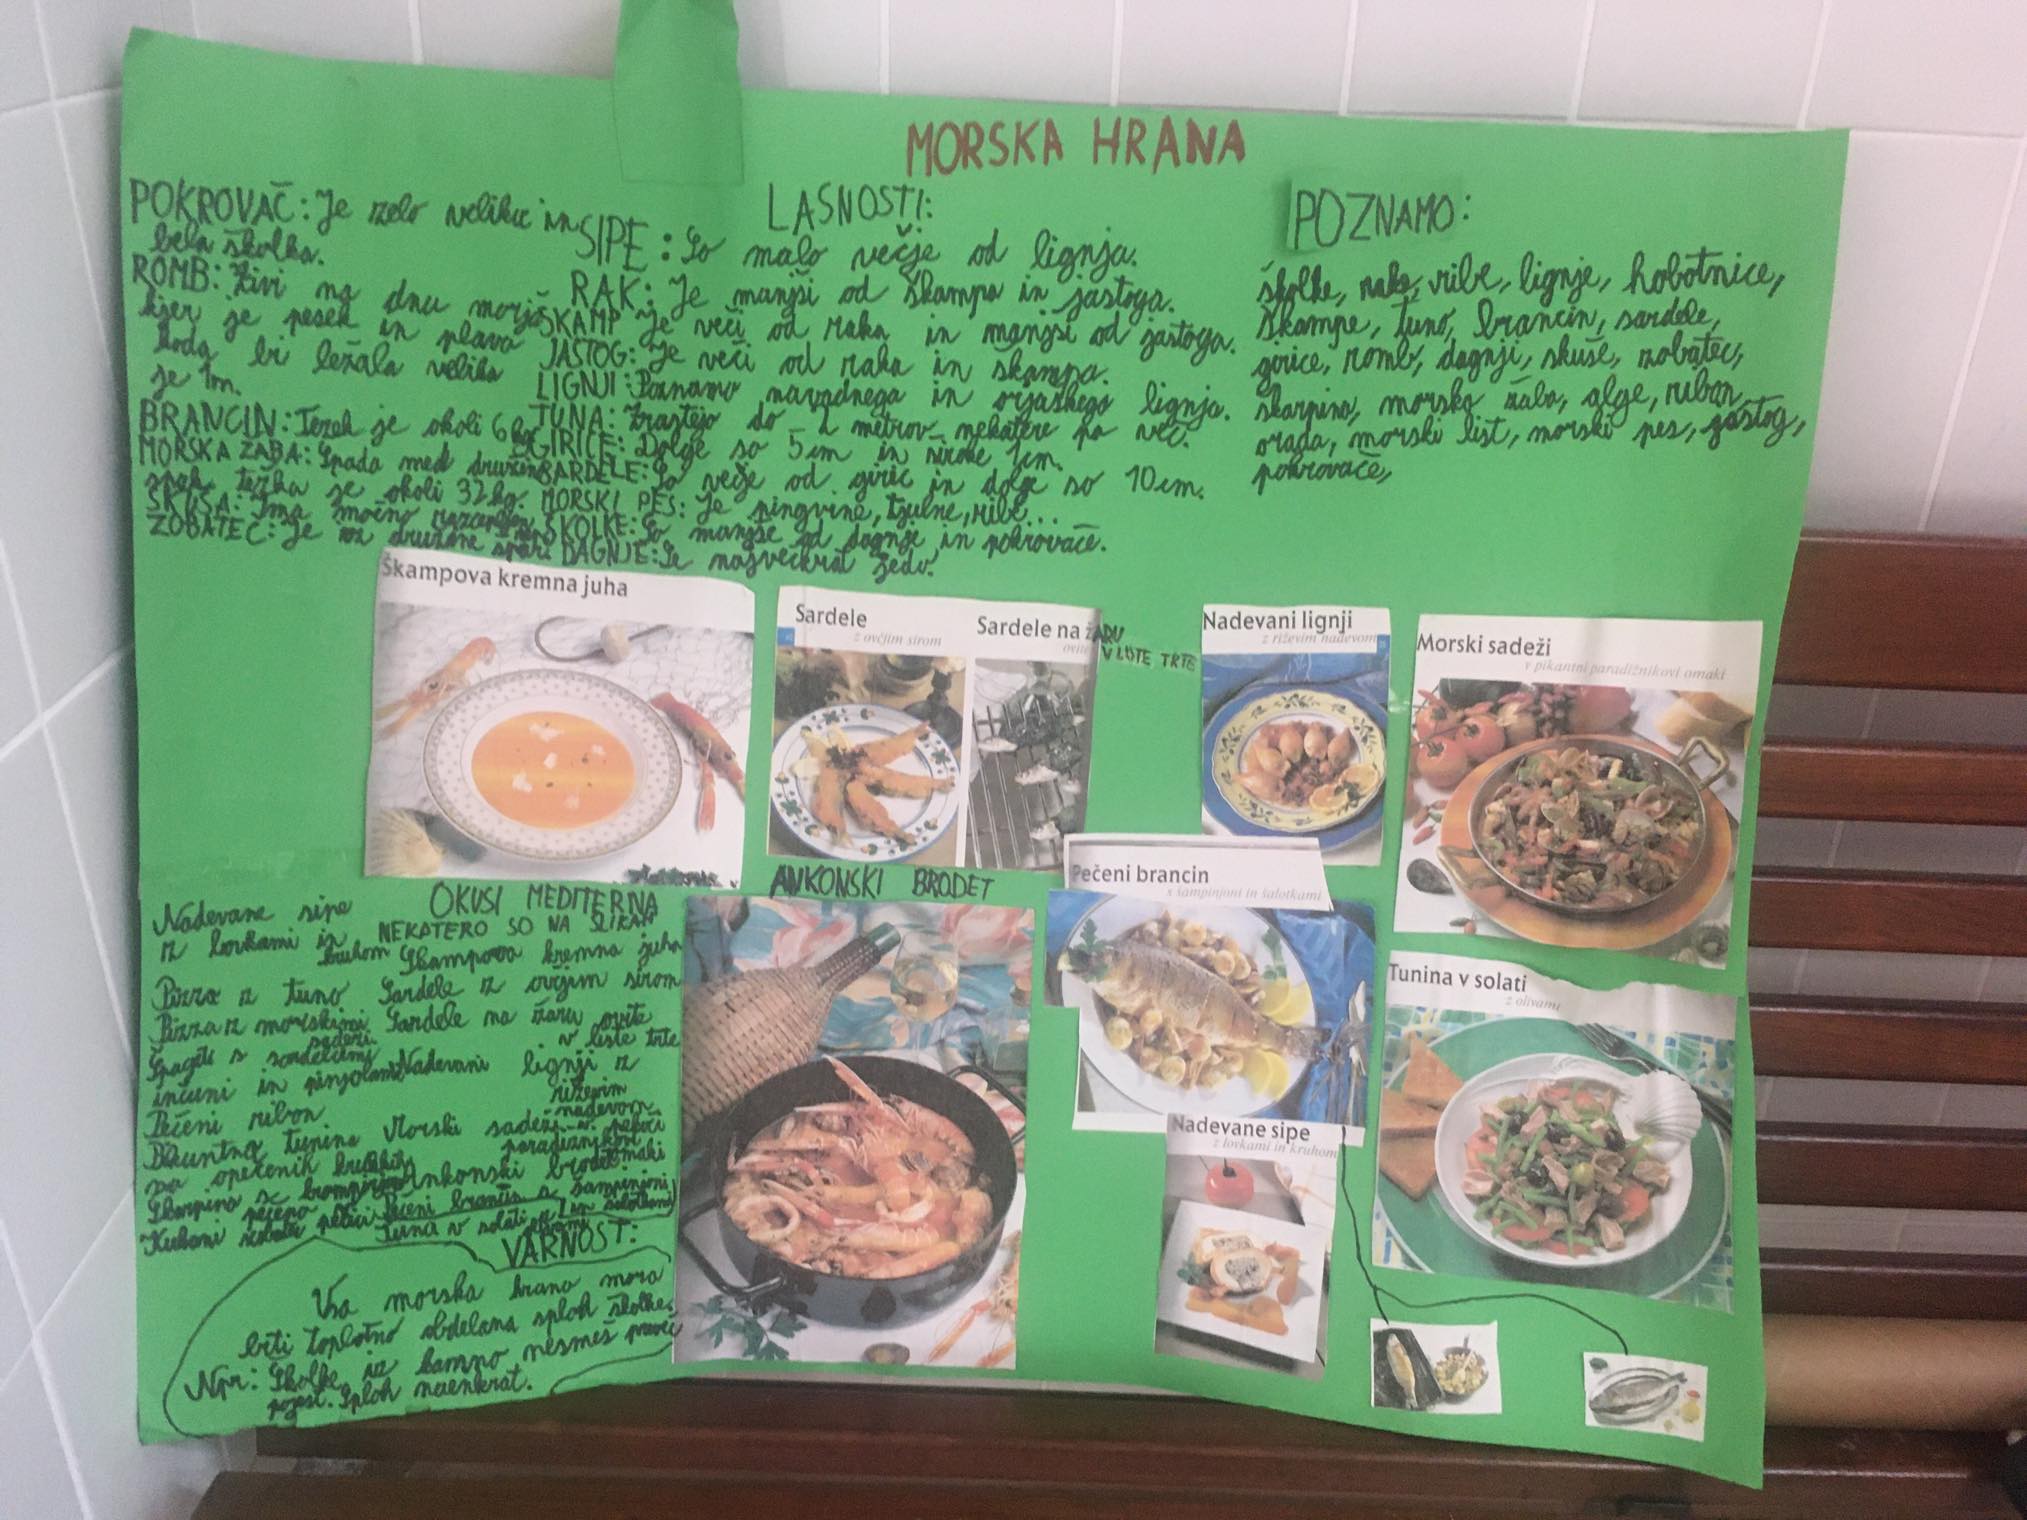 MORSKA HRANA
LASNOSTI:
POKROVAČ: Je zelo velika in
bela školka.
ROMB: Živi na dnu morja
kjer je pesek in plava
koda bi ležala velika
je 1m.
BRANCIN: Težek je okoli 6 kg
MORSKA ŽABA: Spada med družin
spak težka je okoli 32 kg.
ŠKUŠA: Ima močno
ZOBATEC: Je iz družine špari
SIPE: So malo večje od lignja.
RAK: Je manjši od škampa in jastoga.
ŠKAMP je veči od raka in manjši od jastoga.
JASTOG: Je veči od raka in škampa.
LIGNJI: Poznamo navadnega in orjaškega lignja.
TUNA: Zrastejo do 2 metrov nekatere pa več.
GIRICE: Dolge so 5 cm in široke 1cm.
SARDELE: So večje od giric in dolge so 10 cm.
MORSKI PES: Je pingvine, tjulne, ribe...
ŠKOLKE: So manjše od dagnje in pokrovače.
DAGNJE: Se največkrat
POZNAMO:
školke, rake, ribe, lignje, hobotnice,
škampe, tuno, brancin, sardele,
girice, romb, dagnji, skuše, zobatec,
škarpina, morska žaba, alge, ribon
orada, morski list, morski pes, jastog,
pokrovače,
Škampova kremna juha
Sardele
z ovčjim sirom
Sardele na ŽARU
ovite V LISTE TRTE
Nadevani lignji
z riževim nadevom
Morski sadeži
v pikantni paradižnikovi omaki
OKUSI MEDITERNA
NEKATERO SO NA SLIKAH
Nadevane sipe
z lovkami in
kruhom
Pizza z tuno
Pizza z morskimi
sadeži
Špageti s sardelicami
inčuni in pinjolami
Pečeni ribon
tunina
na opečenih
Škarpina s krompirjem
pečena
Kuhani zobatec
Škampova kremna juha
Sardele z ovčjim sirom
Sardele na žaru ovite
v liste trte
Nadevani lignji z
riževim
nadevom
Morski sadeži v
paradižnikovi
omaki
Ankonski brodet
Pečeni brancin s šampinjoni
in šalotkami
Tuna v solati z olivami
VARNOST:
Vsa morska hrana mora
biti toplotno obdelana sploh školke.
Npr: Školke iz kamno nesmeš preveč
pojest. Sploh naenkrat.
ANKONSKI BRODET
Pečeni brancin
s šampinjoni in šalotkami
Tunina v solati
z olivami
Nadevane sipe
z lovkami in kruhom